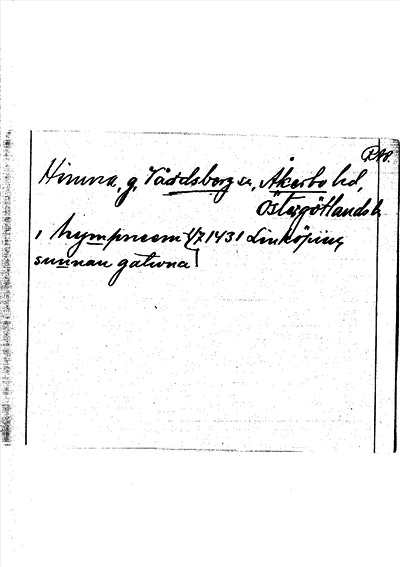 RAP.
Himna, g, Vårdsberg sn, Åkerbo hd,
Östergötlands l.
i hympneem 4/7 1431 Linköping
sunnan gatuna